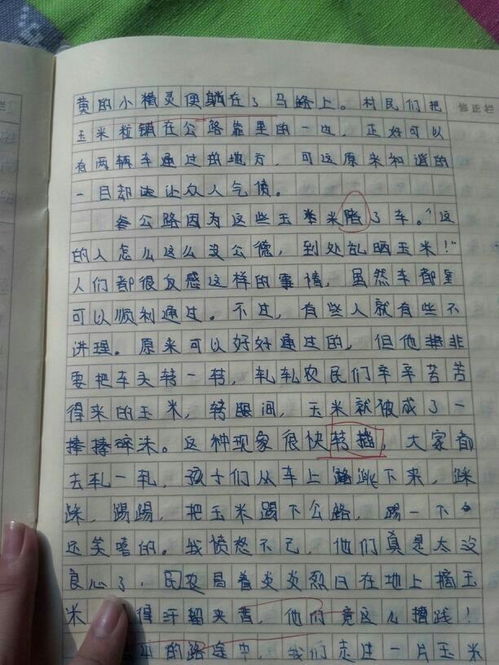 黄的小精灵便躺在了马路上。村民们把
玉米粒铺在公路靠里的一边，正好可以
有两辆车通过的地方，可这原来和谐的
一目却让众人气愤。
公路因为这些玉米陪了车。“这
的人怎么这么没公德，到处乱晒玉米！”
人们都很反感这样的事情，虽然车都是
可以顺利通过。不过，有些人就有些不
讲理。原来可以好好通过的，但他非
要把车头转一转，轧轧农民们辛辛苦苦
得来的玉米，转眼间，玉米就被成了一
摊摊碎沫。这种现象很快转播，大家都
去轧一轧，孩子们从车上跳下来，踩
踩，踢踢，把玉米踢下公路，踢一下
还笑嘻的。我愤怒不已，他们真是太没
良心了，民农冒着炎炎烈日在地上摘玉
米 得汗流夹背，他们竟这么
的路途中，我们走过一片玉米
修正栏